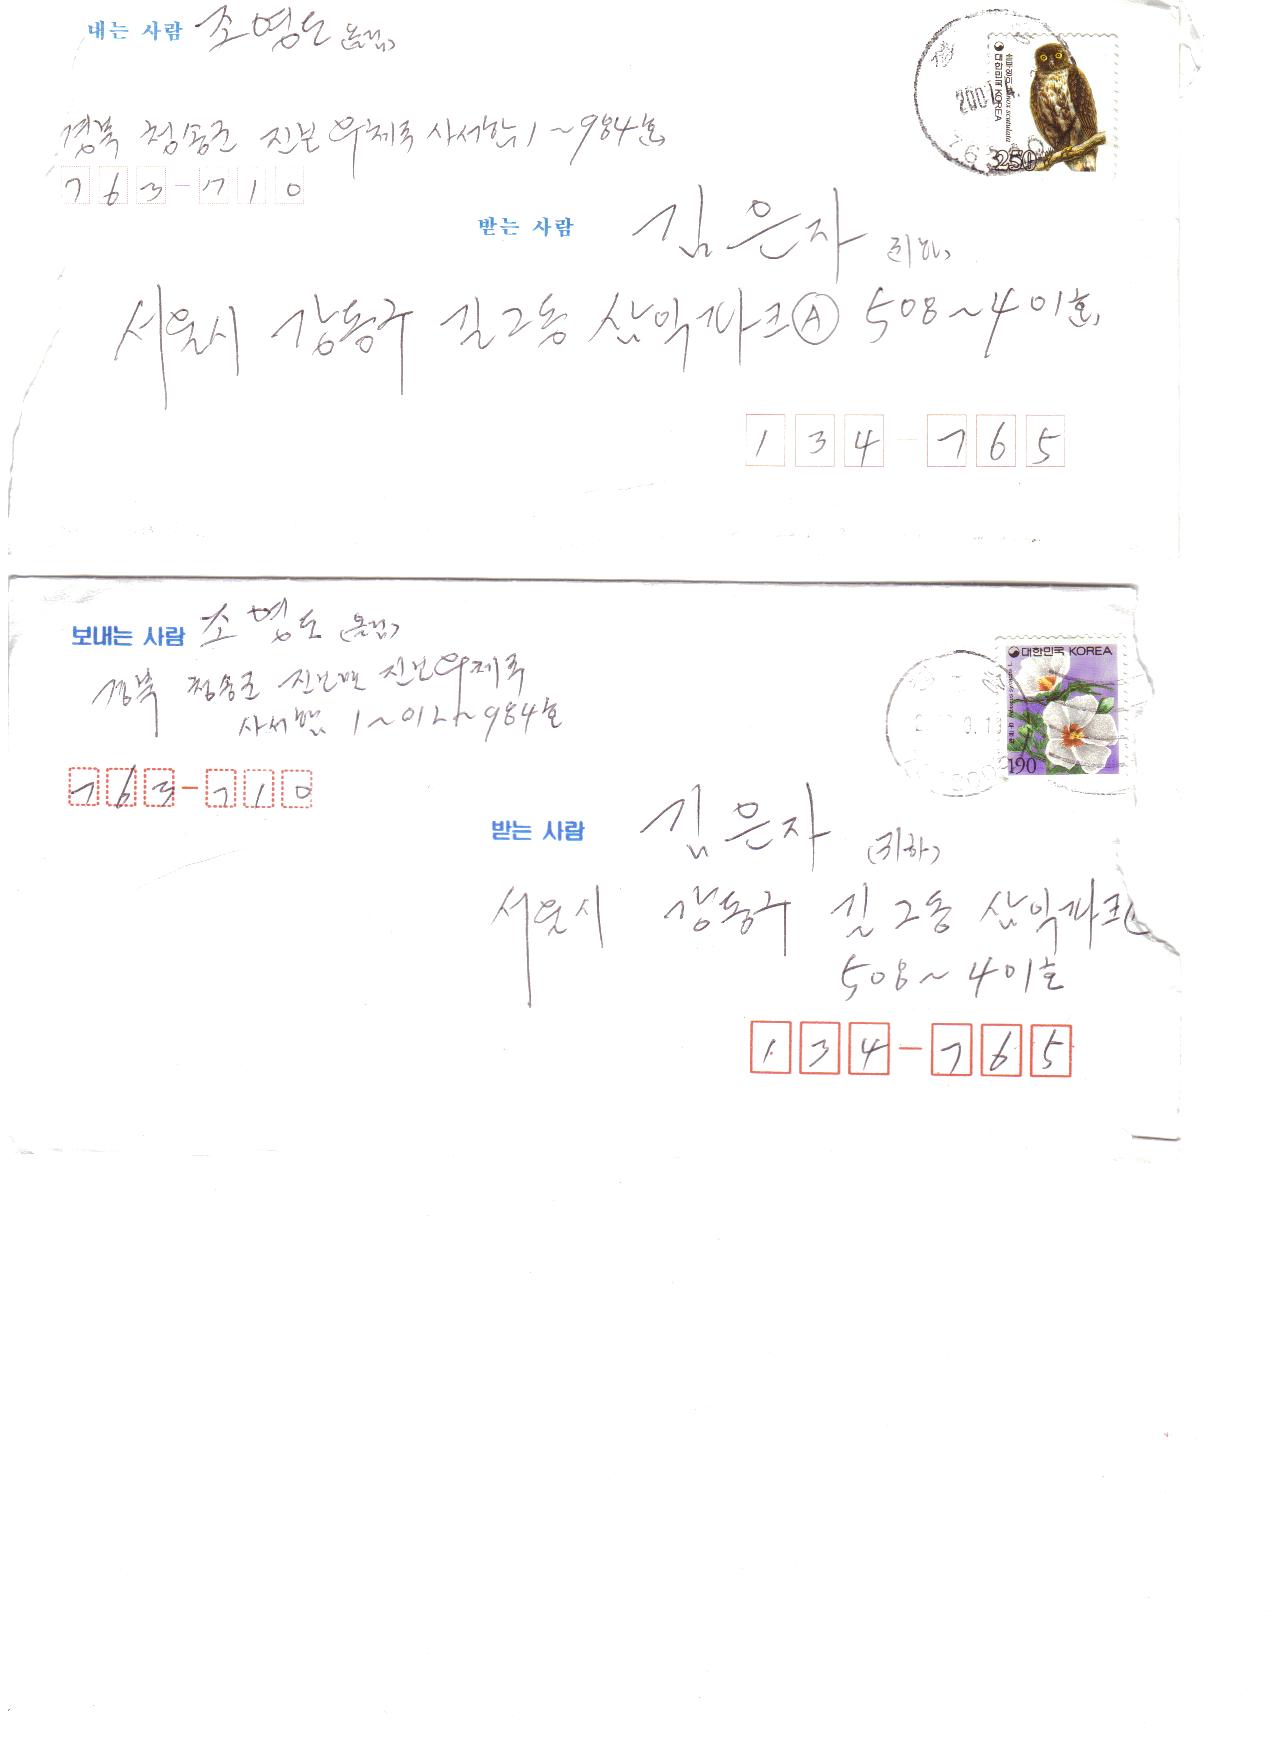 보내는 사람 조영도 (올림)
대한민국 KOREA
솔부엉이 Ninox scutulata
250
2007
경북 청송군 진보 우체국 사서함 1~984호
763-710
받는 사람 김은자 (귀하)
서울시 강동구 길2동 삼익파크Ⓐ 508~401호
134-765
보내는 사람 조영도 (올림)
대한민국 KOREA
190
경북 청송군 진보면 진보우체국
사서함 1~0124~984호
763-710
받는 사람 김은자 (귀하)
서울시 강동구 길2동 삼익파크
508~401호
134-765